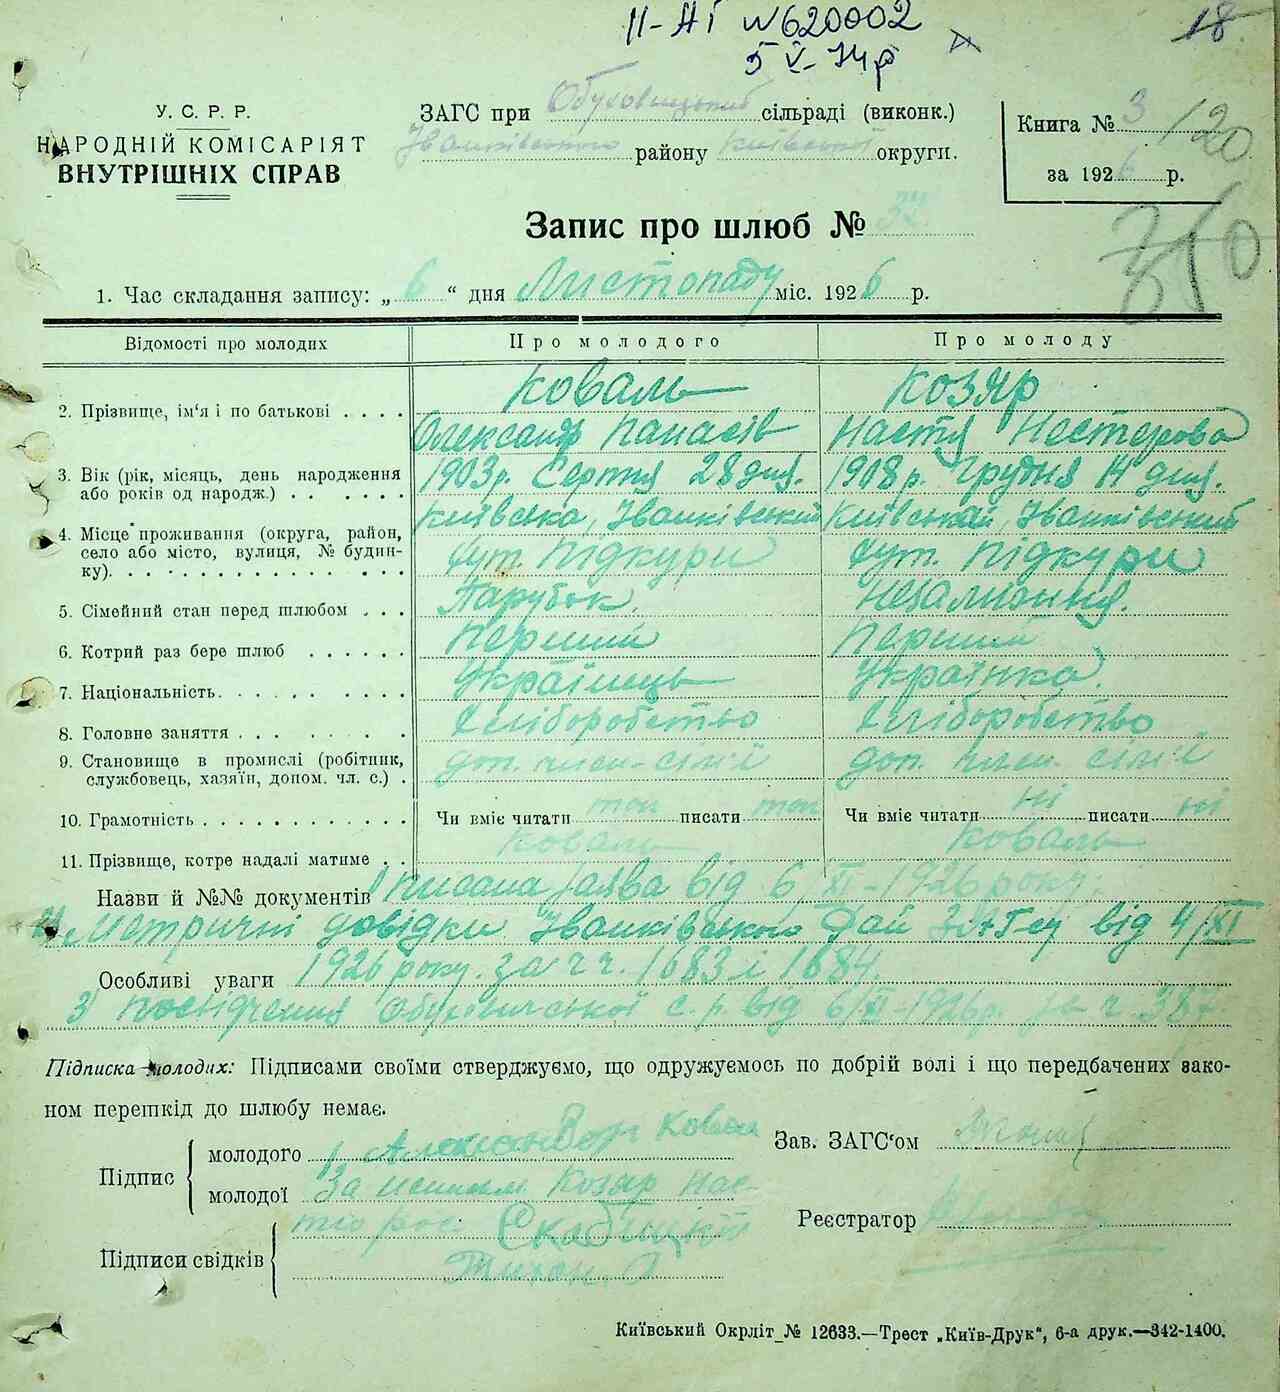 ІІ-АГ №620002
5 V-74р
18
У. С. Р. Р.
НАРОДНІЙ КОМІСАРІЯТ
ВНУТРІШНІХ СПРАВ
ЗАГС при Обуховицький сільраді (виконк.)
Іванківського району Київської округи.
Книга № 3 /120
за 1926 р.
Запис про шлюб № 32.
310
1. Час складання запису: „ 6 “ дня Листопаду міс. 1926 р.
Відомості про молодих Про молодого Про молоду
2. Прізвище, ім‘я і по батькові . . . . Коваль Козяр
Олександр Панасів Настя Нестерова
3. Вік (рік, місяць, день народження 1903р. Серпня 28 дня. 1908р. Грудня 14 дня.
або років од народж.) . . . . . .
4. Місце проживання (округа, район, Київська, Іванківський Київський, Іванківський
село або місто, вулиця, № будин- хут. Підкури хут. Підкури
ку). . . . . . . . . . . . . . .
5. Сімейний стан перед шлюбом . . . Парубок. Незаміжня.
6. Котрий раз бере шлюб . . . . . . Перший Перший
7. Національність. . . . . . . . . . Українець Українка.
8. Головне заняття . . . . . . . . Хліборобство Хліборобство
9. Становище в промислі (робітник, доп. член. сім'ї доп. член. сім'ї
службовець, хазяїн, допом. чл. с.) .
10. Грамотність . . . . . . . . . . . . Чи вміє читати так писати так Чи вміє читати ні писати ні
11. Прізвище, котре надалі матиме . . Коваль Коваль
Назви й №№ документів 1) Писана заява від 6/XI-1926 року.
2) Метричні довідки Іванківського Рай ЗАГСу від 4/XI
Особливі уваги 1926 року. за ч ч. 1683 і 1684.
3) посвідчення Обуховичської с. р. від 6/XI-1926р. за ч. 387.
Підписка молодих: Підписами своїми стверджуємо, що одружуємось по добрій волі і що передбачених зако-
ном перешкід до шлюбу немає.
Підпис
молодого 1) Александер Ковал
молодої За неписьм. Козяр Нас-
тю рос. Скабицкій
Підписи свідків
Тихон.
Зав. ЗАГС‘ом
Реєстратор
Київський Окрліт № 12633.—Трест „Київ-Друк“, 6-а друк.—342-1400.